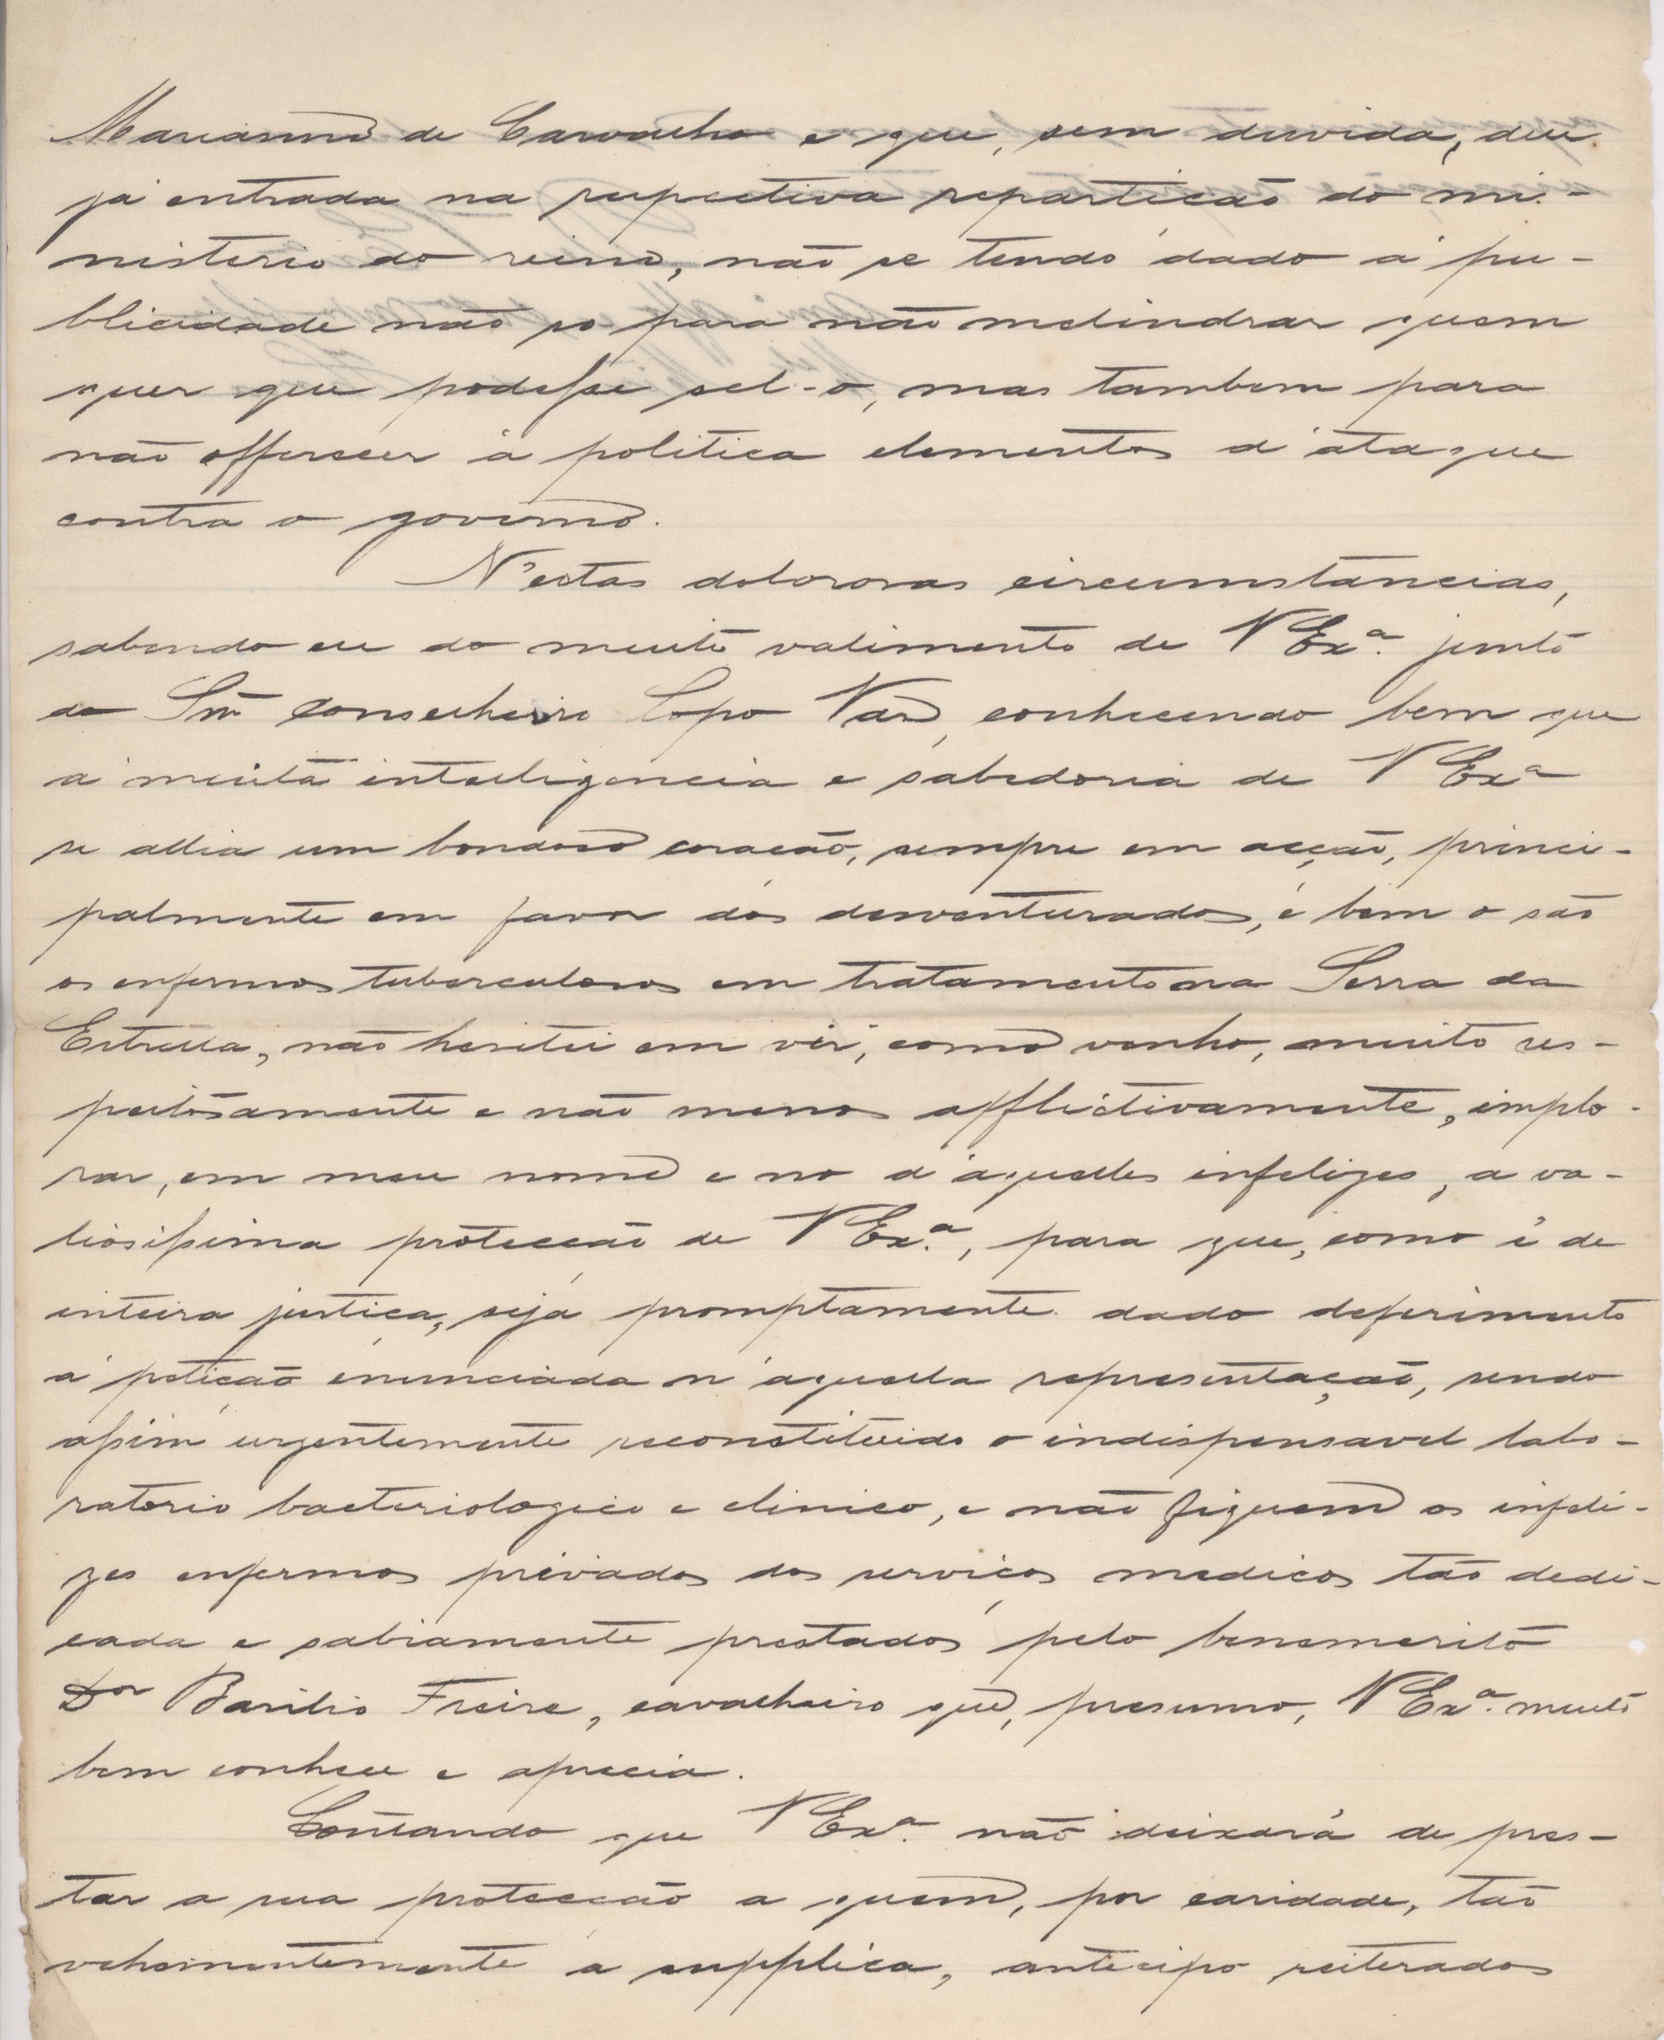 Marianno de Carvalho e que, sem duvida, deu
já entrada na respectiva repartição do mi-
nisterio do reino, não se tendo dado á pu-
blicidade não só para não melindrar quem
quer que podesse sel-o, mas tambem para
não offerecer á politica elementos d'ataque
contra o governo.
N'estas dolorosas circumstancias,
sabendo eu do muito valimento de V Exª. junto
do Snr Conselheiro Lopo Vaz, conhecendo bem que
á muita intelligencia e sabedoria de V Exª
se allia um bondoso coração, sempre em acção, princi-
palmente em favor dos desventurados, é bem o são
os enfermos tuberculosos em tratamento na Serra da
Estrella, não hesitei em vir, como venho, muito res-
peitosamente e não menos afflictivamente, implo-
rar, em meu nome e no d'aquelles infelizes, a va-
liosissima protecção de V Exª., para que, como é de
inteira justiça, seja promptamente dado deferimento
á petição enunciada n'aquella representação, sendo
assim urgentemente reconstituido o indispensavel labo-
ratorio bacteriologico e clinico, e não fiquem os infeli-
zes enfermos privados dos serviços medicos tão dedi-
cada e sabiamente prestados pelo benemerito
Dor Basilio Freire, cavalheiro que, presumo, V Exª. muito
bem conhece e aprecia.
Contando que V Exª. não deixará de pres-
tar a sua protecção a quem, por caridade, tão
vehementemente a supplica, antecipo reiterados